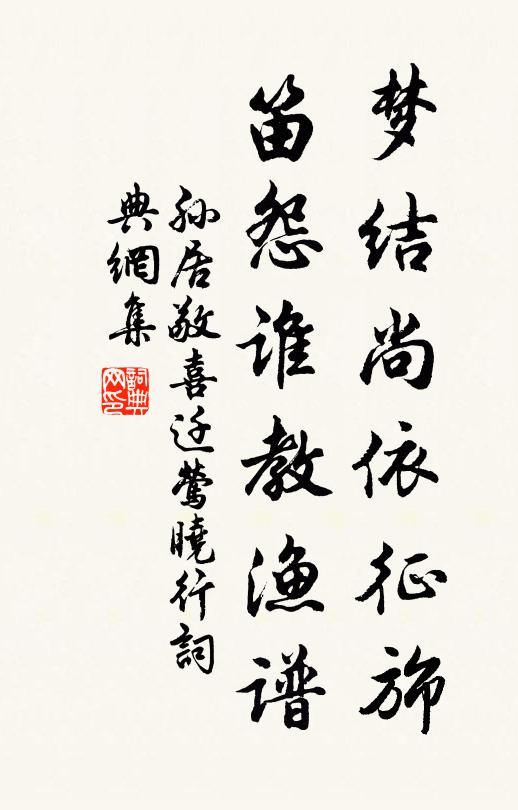 梦结尚依征旆
笛怨谁教渔谱
孙居敬喜迁莺晓行詞
典網集
詞典网印